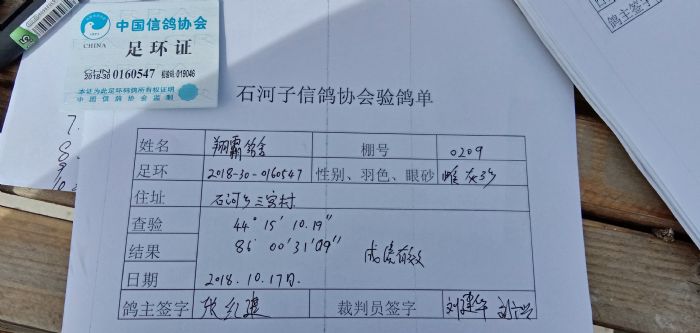 中国信鸽协会
CHINA
足环证
2018-30 0160547 019046
本证为此足环鸽所有权证
中国信鸽协会监制
鸽主签字
石河子信鸽协会验鸽单
姓名 翔霸鸽舍 棚号 0209
足环 2018-30-0160547 性别、羽色、眼砂 雌 灰 砂
住址 石河子三宫村
查验 44°15′10.19″
结果 86°00′31.09″ 成绩有效
日期 2018.10.17日
鸽主签字 张红建 裁判员签字 刘建华
7.
8
9
10